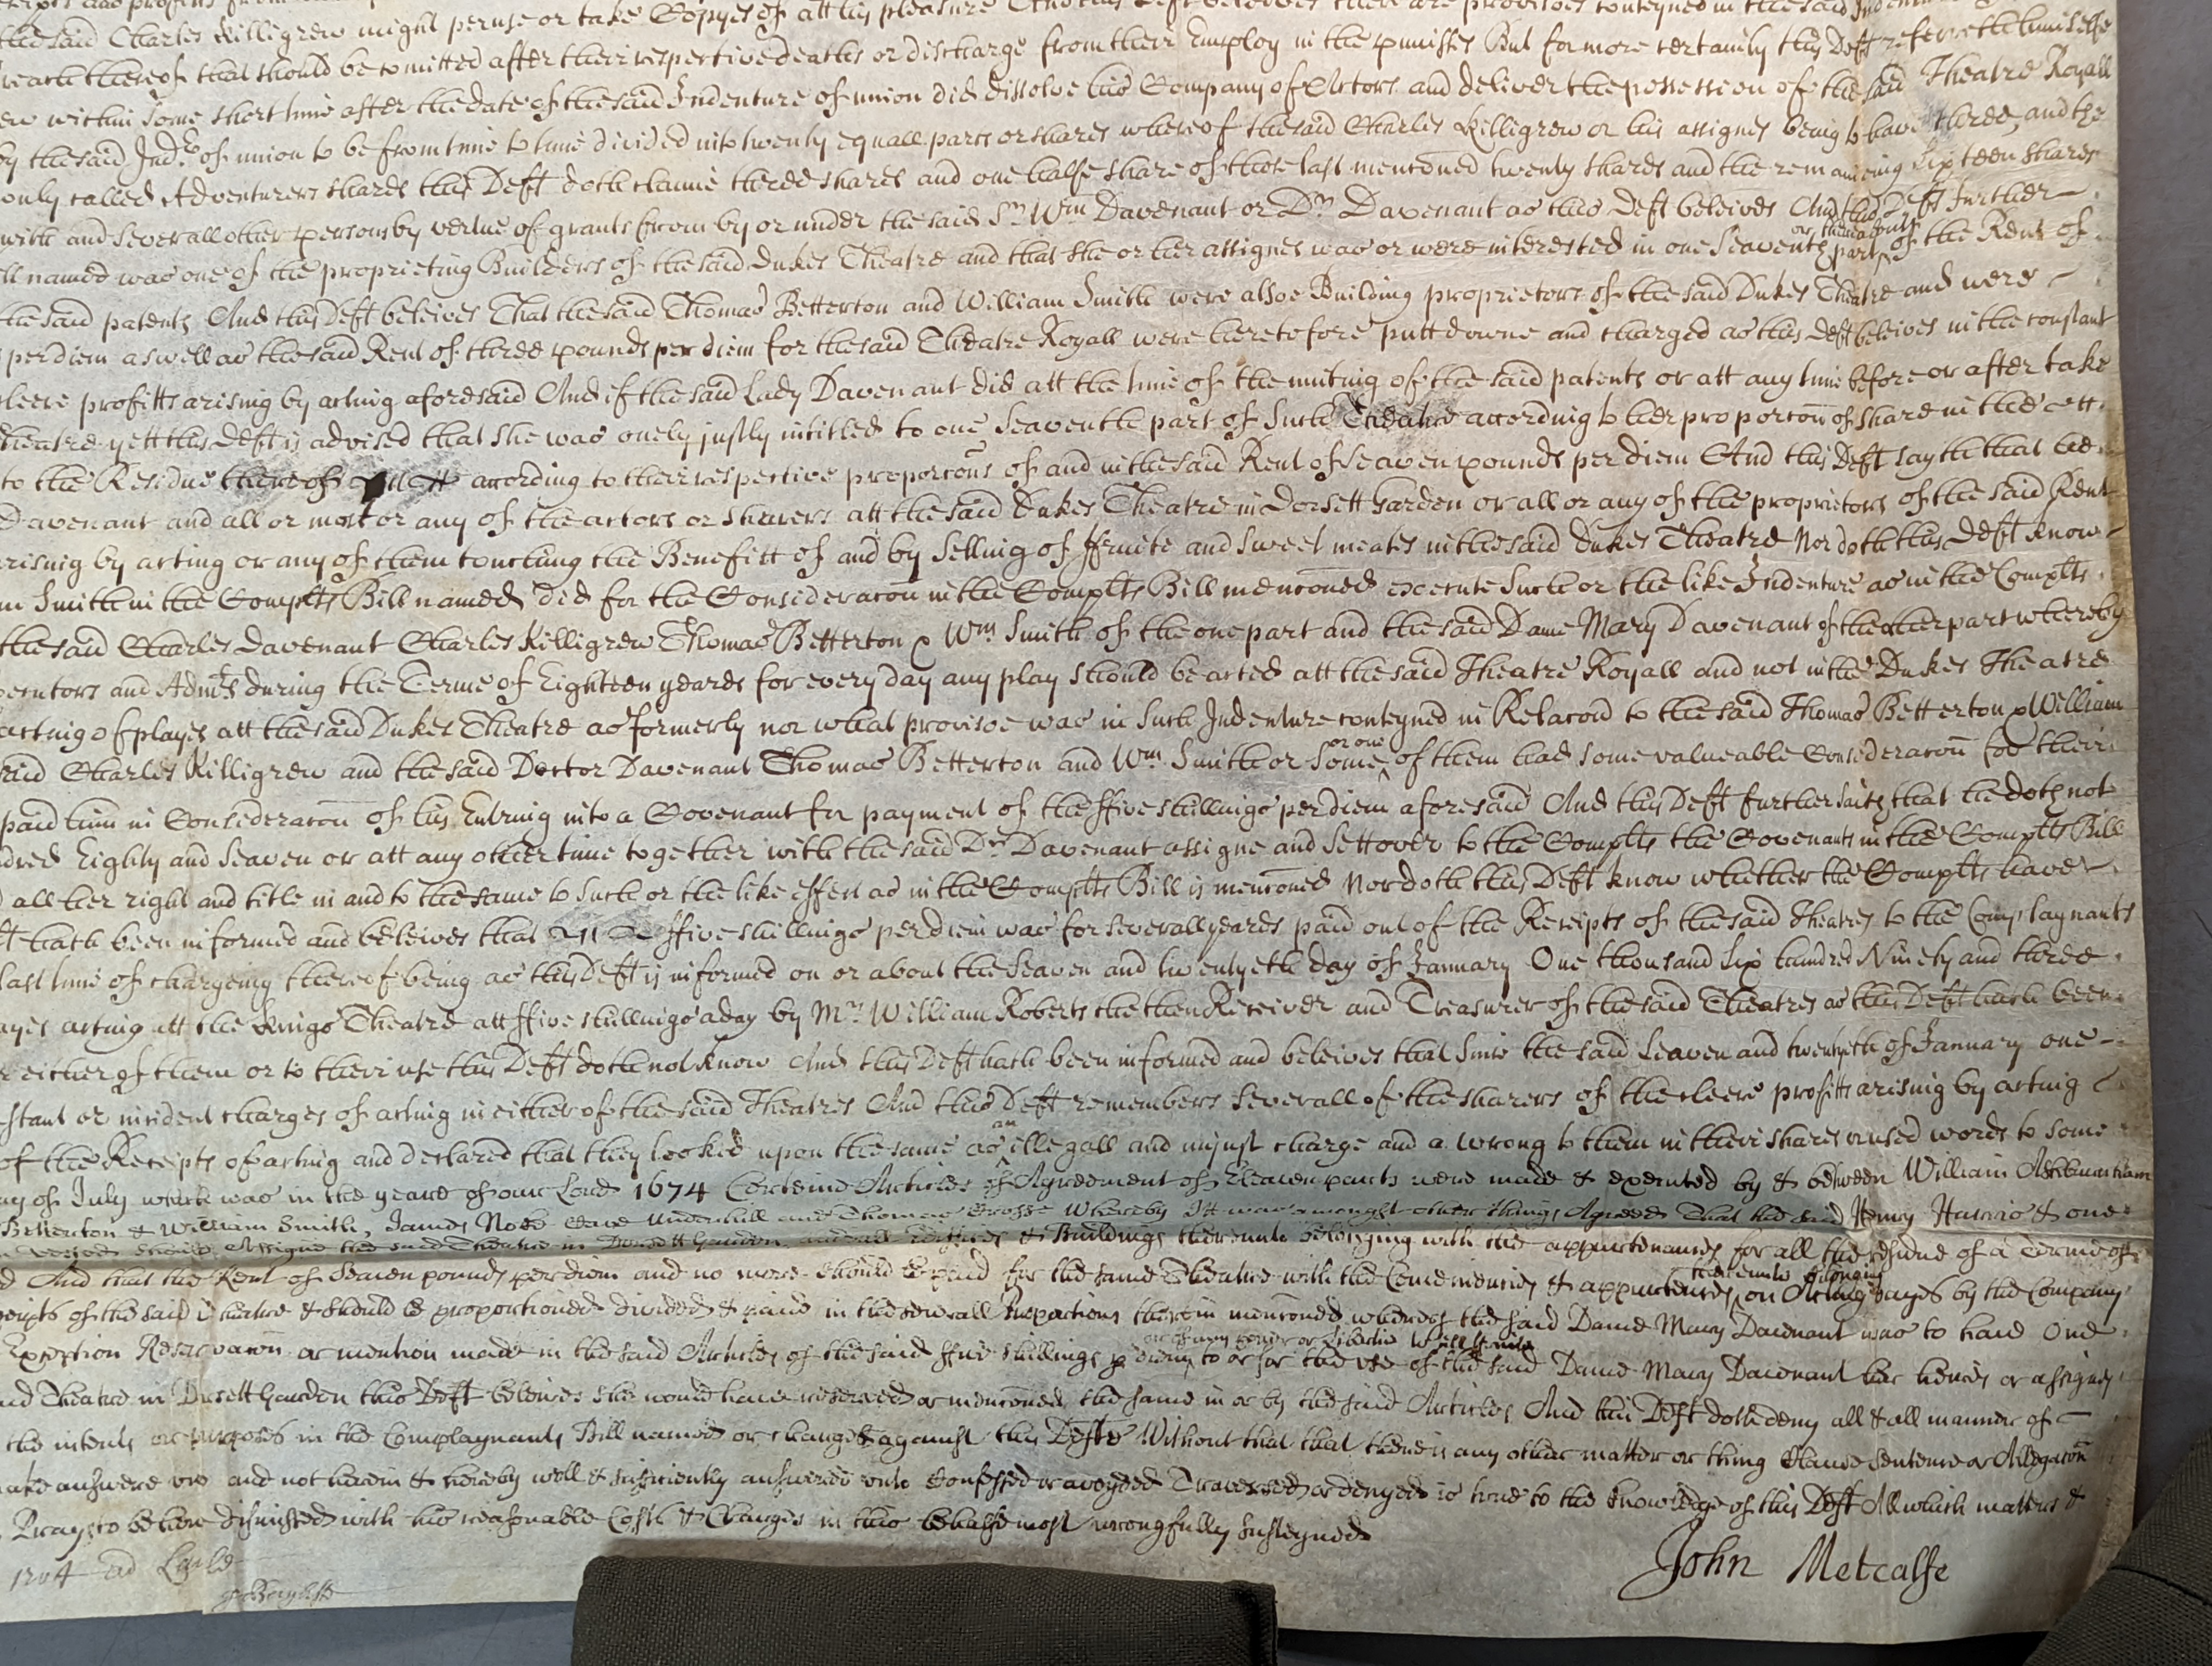 the said Charles Killigrew might peruse or take Copyes of att his pleasure And this Deft beleives there are provisoes conteyned in the said Indenture
breach thereof that should be comitted after their respective deaths or discharge from their Employ in the pmisses But for more certainty this Deft referreth himselfe
ew within some short time after the date of the said Indenture of union did dissolve his Company of Actors and deliver the possession of the said Theatre Royall
by the said Indre of union to be from time to time divided into twenty equall parts or shares whereof the said Charles Killigrew or his assignes being to have three, and the
only called Adventurers shares this Deft doth claime three shares and one halfe share of those last mencōned twenty shares and the remaineing Sixteen shares
with and severall other persons by vertue of grants from by or under the said Sr Wm Davenant or Dr Davenant as this Deft beleives And this Deft further
ll named was one of the proprieting Builders of the said Dukes Theatre and that she or her assignes was or were interested in one Seaventh part or thereabouts of the Rent of
the said patents And this Deft beleives That the said Thomas Betterton and William Smith were alsoe Building proprietors of the said Dukes Theatre and were
per diem aswell as the said Rent of three pounds per diem for the said Theatre Royall were heretofore putt downe and charged as this Deft beleives in the constant
cleere profitts arising by acting aforesaid And if the said Lady Davenant did att the time of the uniting of the said patents or att any time before or after take
Theatre yett this Deft is advised that she was onely justly intitled to one Seaventh part of such Theatre according to her proporcōn of share in the
to the Residue thereof according to their respective proporcōns of and in the said Rent of Seaven pounds per diem And this Deft saith that he
Davenant and all or most or any of the actors or sharers att the said Dukes Theatre in Dorsett Garden or all or any of the proprietors of the said Rent
rising by acting or any of them touching the Benefitt of and by Selling of ffruite and Sweet meates in the said Dukes Theatre Nor doth this Deft know
m Smith in the Complts Bill named did for the Consideracōn in the Complts Bill mencōned execute such or the like Indenture as in the Complts
the said Charles Davenant Charles Killigrew Thomas Betterton & Wm Smith of the one part and the said Dame Mary Davenant of the other part whereby
xecutors and Admrs during the Terme of Eighteen yeares for every day any play should be acted att the said Theatre Royall and not in the Dukes Theatre
acting of playes att the said Dukes Theatre as formerly nor what provisoe was in such Indenture conteyned in Relacōn to the said Thomas Betterton & William
said Charles Killigrew and the said Doctor Davenant Thomas Betterton and Wm Smith or some or one of them had some valueable Consideracōn for their
paid him in Consideracōn of his Entring into a Covenant for payment of the ffive shillings per diem aforesaid And this Deft further saith that he doth not
dred Eighty and Seaven or att any other time together with the said Dr Davenant assigne and Sett over to the Complts the Covenants in the Complts Bill
all her right and title in and to the same to such or the like effect as in the Complts Bill is mencōned Nor doth this Deft know whether the Complts have
ft hath been informed and beleives that ffive shillings per diem was for severall yeares paid out of the Receipts of the said Theatres to the Complaynants
last time of chargeing thereof being as this Deft is informed on or about the Seaven and twentyeth day of January One thousand Six hundred Ninety and three
ayes acting att the Kings Theatre att ffive shillings a day by Mr William Roberts the then Receiver and Treasurer of the said Theatres as this Deft hath been
r either of them or to their use this Deft doth not know And this Deft hath been informed and beleives that since the said Seaven and twentyeth of January one
stant or incident charges of acting in either of the said Theatres And this Deft remembers severall of the sharers of the cleere profitts arising by acting
of the Receipts of acting and declared that they looked upon the same as an illegall and unjust charge and a wrong to them in their shares or used words to some
ay of July which was in the yeare of our Lord 1674 Certeine Articles of Agreement of Eleaven parts were made & executed by & between William Ashburnham
Betterton & William Smith, James Nokes Cave Underhill and Thomas Crosse Whereby It was amongst other things Agreed That the said Henry Harris & one
should Assigne the said Theatre in Dorsett Garden and all Edifices & Buildings thereunto belonging with the appurtenances for all the residue of a Terme of
d And that the Rent of Seaven pounds per diem and no more should be paid for the same Theatre with the Conveniencies & appurtences thereunto belonging on Acting dayes by the Company
ceipts of the said Theatre & should be proportioned divided & paid in the severall Proportions therein mencōned whereof the said Dame Mary Davenant was to have One
Exception Reservacōn or mention made in the said Articles of the said ffive shillings p diem to or for the use of the said Dame Mary Davenant her heires or assignes
id Theatre in Dorsett Garden this Deft beleives she would have reserved or mencōned the same in or by the said Articles And this Deft doth deny all & all manner of
the intents or purposes in the Complaynants Bill named or charged against this Deft Without that that there is any other matter or thing Clause Sentence or Allegacōn
ake answere unto and not herein & hereby well & sufficiently answered unto Confessed or avoyded Traversed or denyed is true to the knowledge of this Deft All which matters &
Prays to be hence dismissed with his reasonable Costs & Charges in this behalfe most wrongfully susteyned
1704
John Metcalfe